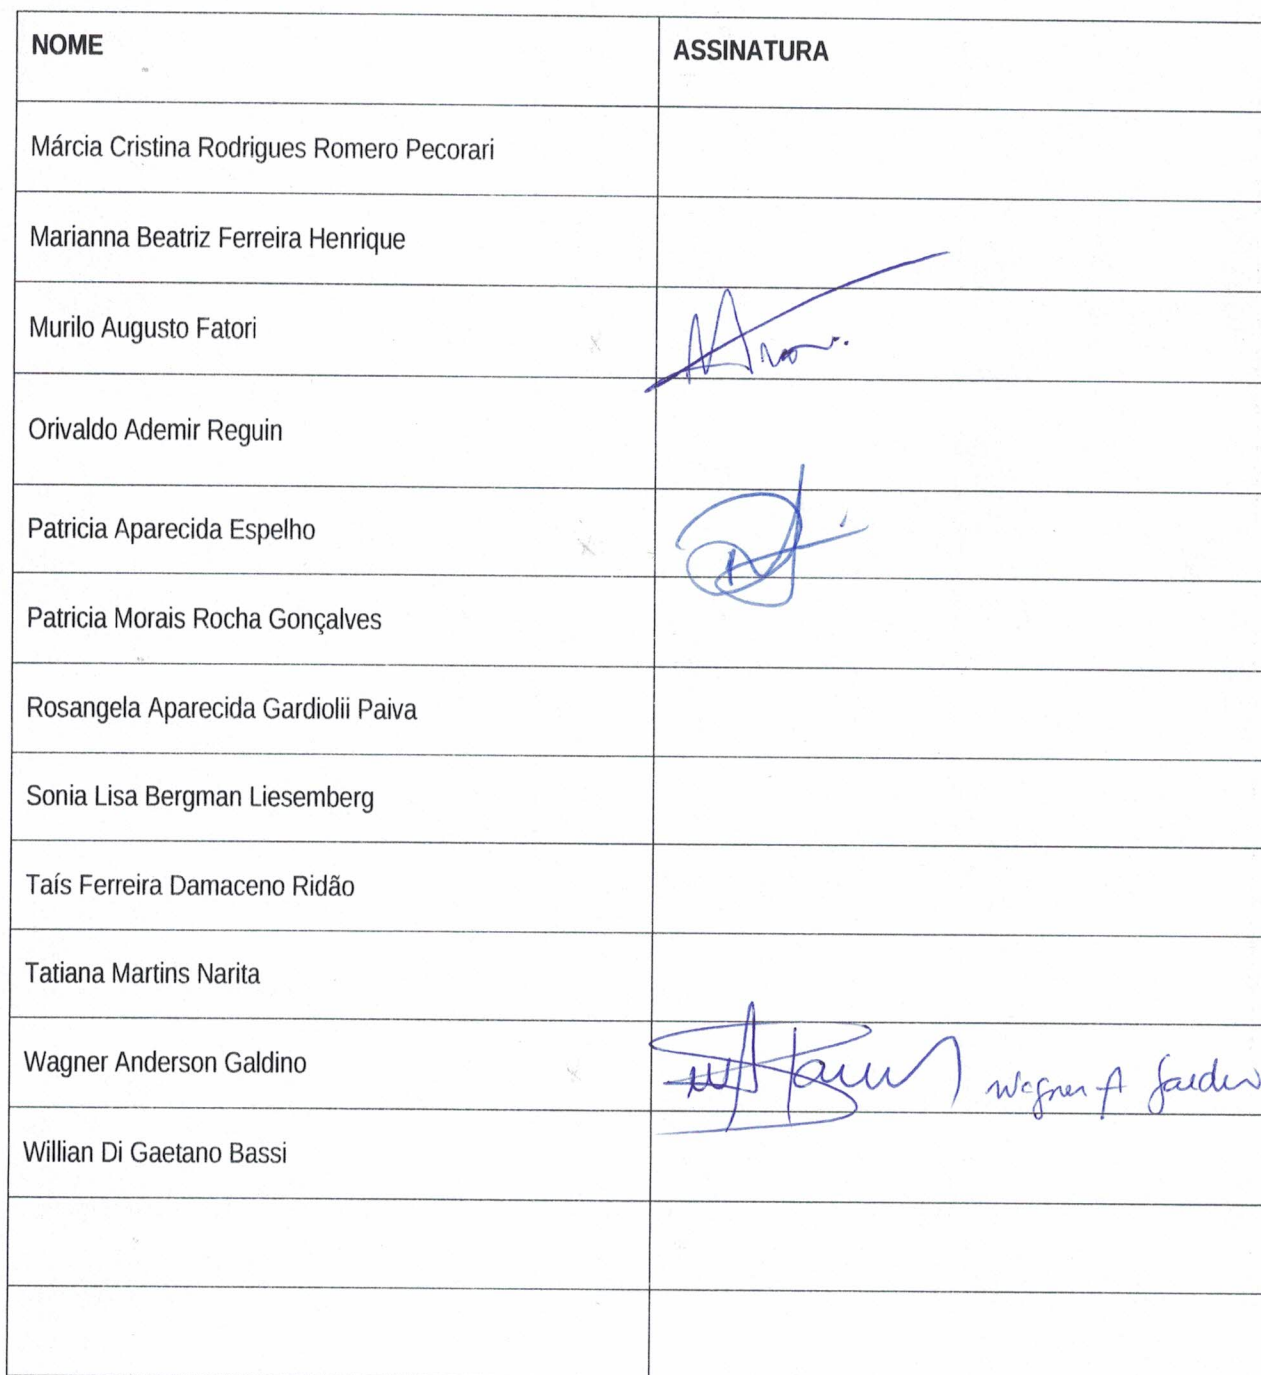 NOME ASSINATURA
Márcia Cristina Rodrigues Romero Pecorari
Marianna Beatriz Ferreira Henrique
Murilo Augusto Fatori
Orivaldo Ademir Reguin
Patricia Aparecida Espelho
Patricia Morais Rocha Gonçalves
Rosangela Aparecida Gardiolii Paiva
Sonia Lisa Bergman Liesemberg
Taís Ferreira Damaceno Ridão
Tatiana Martins Narita
Wagner Anderson Galdino Wagner A
Willian Di Gaetano Bassi